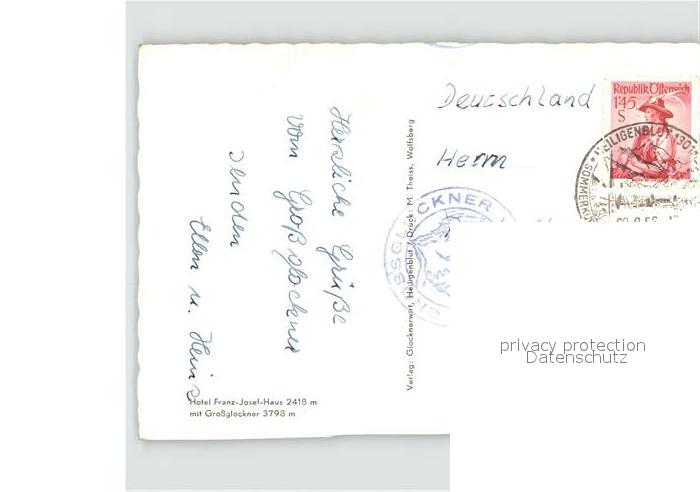 Herzliche Grüße
vom Großglockner
senden
Ellen u. Heinz
Hotel Franz-Josef-Haus 2418 m
mit Großglockner 3798 m
Verlag: Glocknerwirt, Heiligenblut / Druck: M. Theiss, Wolfsberg
Deutschland
Herrn
Republik Österreich
1'45
S
HEILIGENBLUT 1301
GROSSGLOCKNER
privacy protection
Datenschutz